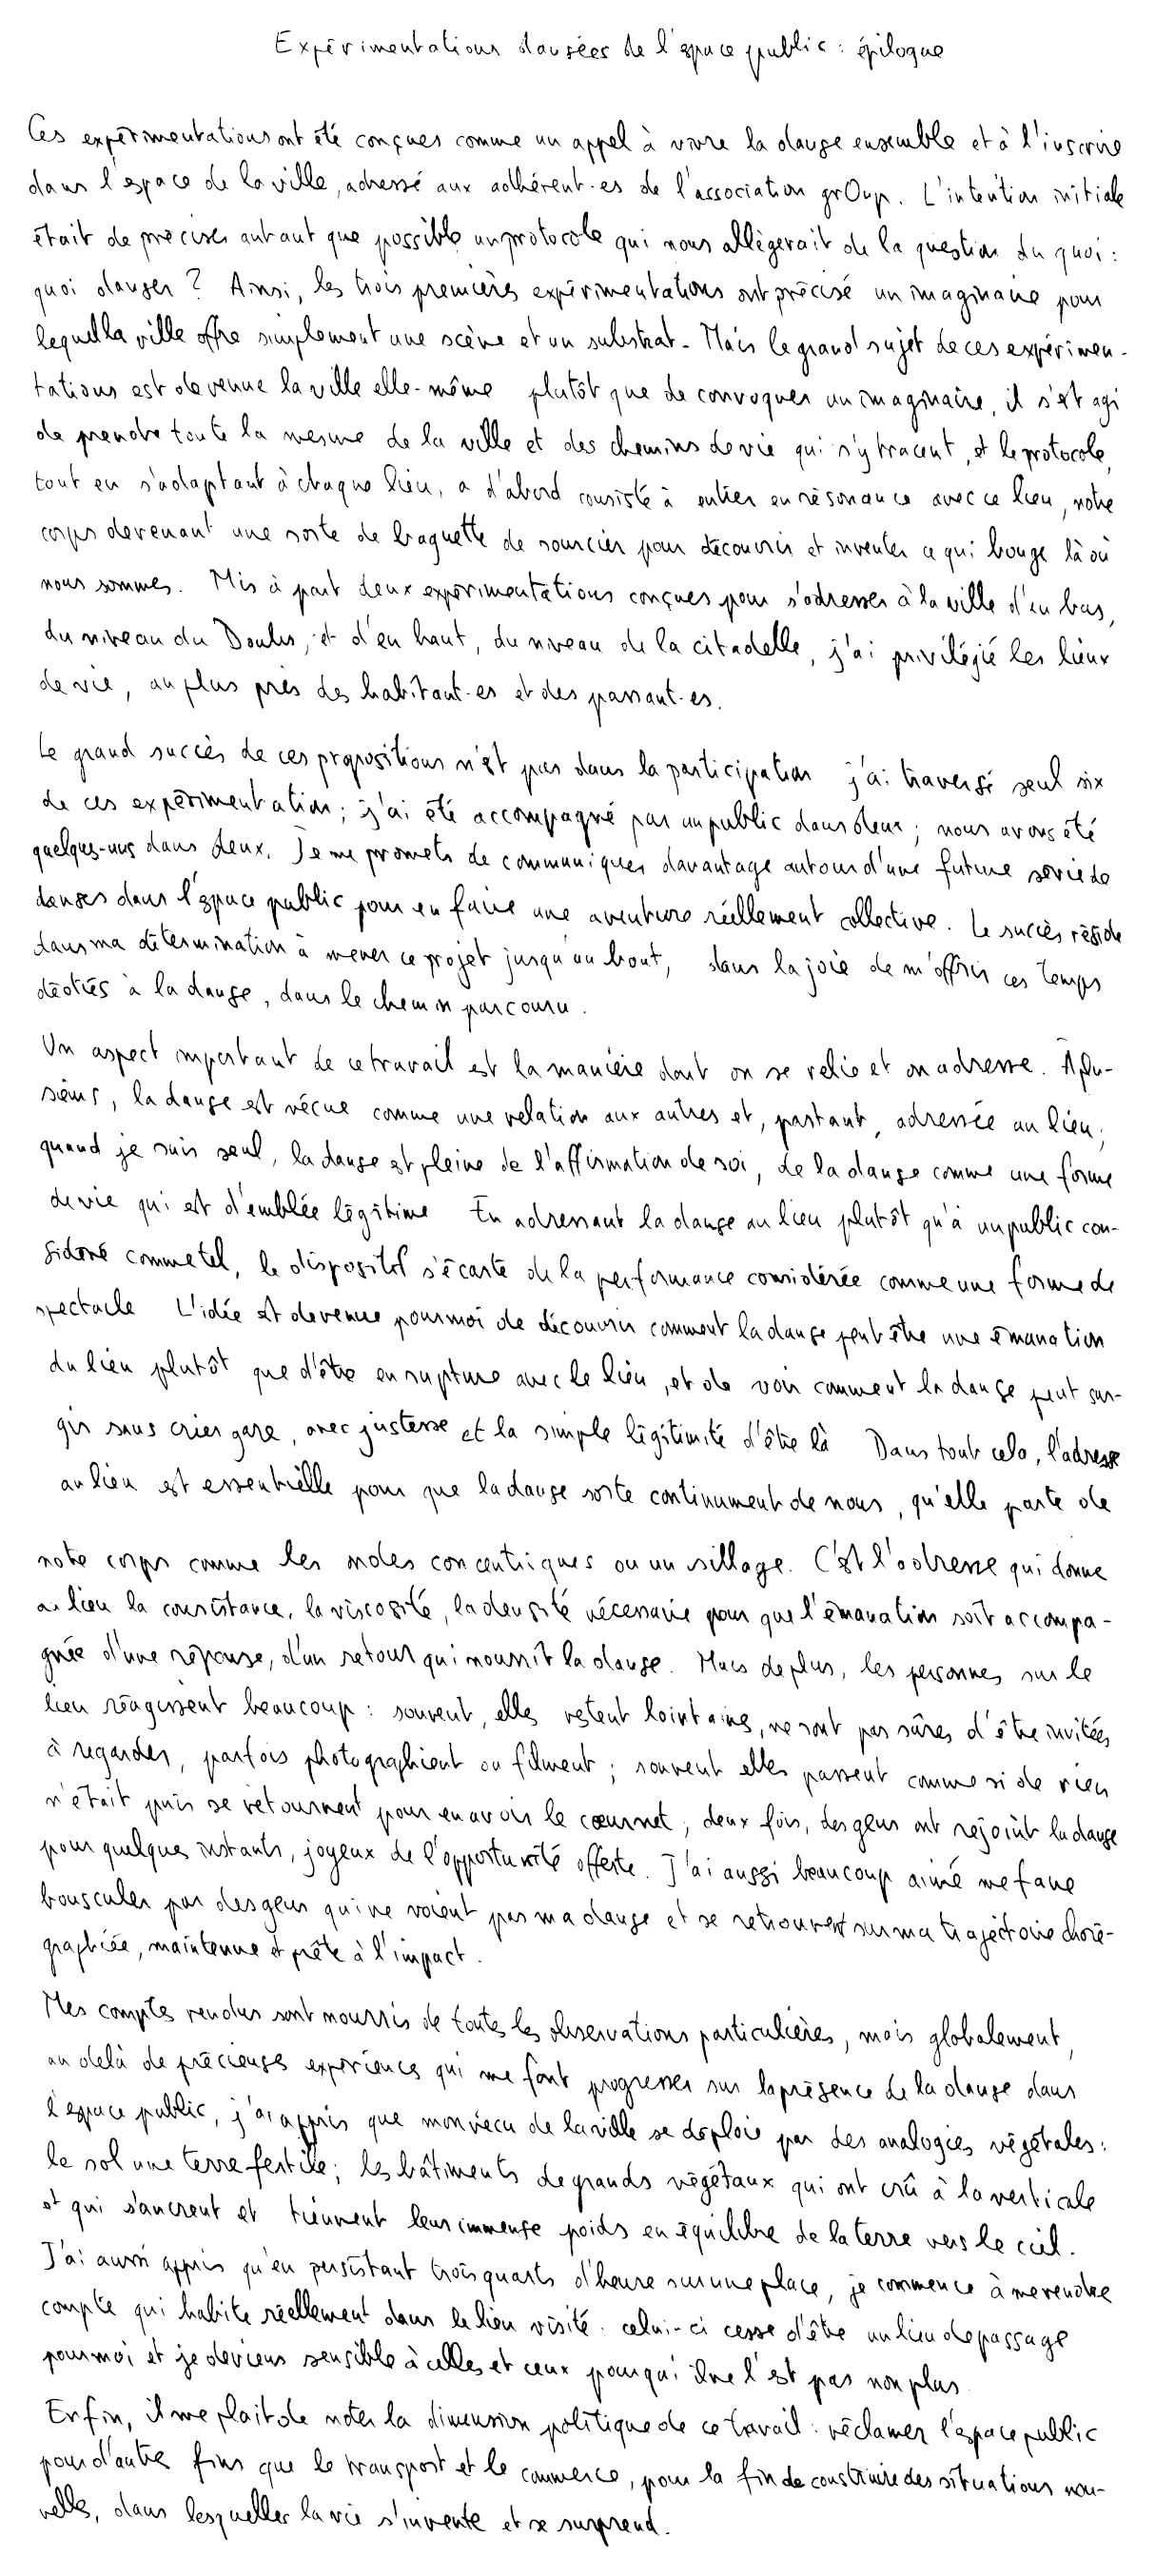 Expérimentations dansées de l'espace public : épilogue
Ces expérimentations ont été conçues comme un appel à vivre la danse ensemble et à l'inscrire
dans l'espace de la ville, adressé aux adhérent·es de l'association grOup. L'intention initiale
était de préciser autant que possible un protocole qui nous allègerait de la question du quoi :
quoi danser ? Ainsi, les trois premières expérimentations ont précisé un imaginaire pour
lequel la ville offre simplement une scène et un substrat. Mais le grand sujet de ces expérimen-
tations est devenue la ville elle-même plutôt que de convoquer un imaginaire, il s'est agi
de prendre toute la mesure de la ville et des chemins de vie qui s'y tracent, et le protocole,
tout en s'adaptant à chaque lieu, a d'abord consisté à entrer en résonance avec ce lieu, notre
corps devenant une sorte de baguette de sourcier pour découvrir et inventer ce qui bouge là où
nous sommes. Mis à part deux expérimentations conçues pour s'adresser à la ville d'en bas,
du niveau du Doubs, et d'en haut, du niveau de la citadelle, j'ai privilégié les lieux
de vie, au plus près des habitant·es et des passant·es.
Le grand succès de ces propositions n'est pas dans la participation j'ai traversé seul six
de ces expérimentation ; j'ai été accompagné par un public dans deux ; nous avons été
quelques-uns dans deux. Je me promets de communiquer davantage autour d'une future série de
danses dans l'espace public pour en faire une aventure réellement collective. Le succès réside
dans ma détermination à mener ce projet jusqu'au bout, dans la joie de m'offrir ces temps
dédiés à la danse, dans le chemin parcouru.
Un aspect important de ce travail est la manière dont on se relie et on adresse. À plu-
sieurs, la danse est vécue comme une relation aux autres et, partant, adressée au lieu ;
quand je suis seul, la danse est pleine de l'affirmation de soi, de la danse comme une forme
de vie qui est d'emblée légitime En adressant la danse au lieu plutôt qu'à un public con-
sidéré comme tel, le dispositif s'écarte de la performance considérée comme une forme de
spectacle L'idée est devenue pour moi de découvrir comment la danse peut être une émanation
du lieu plutôt que d'être en rupture avec le lieu, et de voir comment la danse peut sur-
gir sans crier gare, avec justesse et la simple légitimité d'être là Dans tout cela, l'adresse
au lieu est essentielle pour que la danse sorte continument de nous, qu'elle parte de
notre corps comme les ondes concentriques ou un sillage. C'est l'adresse qui donne
au lieu la consistance, la viscosité, la densité nécessaire pour que l'émanation soit accompa-
gnée d'une réponse, d'un retour qui nourrit la danse. Mais de plus, les personnes sur le
lieu réagissent beaucoup : souvent, elles restent lointaines, ne sont pas sûres d'être invitées
à regarder, parfois photographient ou filment ; souvent elles passent comme si de rien
n'était puis se retournent pour en avoir le cœur net ; deux fois, des gens ont rejoint la danse
pour quelques instants, joyeux de l'opportunité offerte. J'ai aussi beaucoup aimé me faire
bousculer par des gens qui ne voient pas ma danse et se retrouvent sur ma trajectoire choré-
graphiée, maintenue et prête à l'impact.
Mes comptes rendus sont nourris de toutes les observations particulières, mais globalement,
au delà de précieuses expériences qui me font progresser sur la présence de la danse dans
l'espace public, j'ai appris que mon vécu de la ville se déploie par des analogies végétales :
le sol une terre fertile ; les bâtiments de grands végétaux qui ont crû à la verticale
et qui s'ancrent et tiennent leur immense poids en équilibre de la terre vers le ciel.
J'ai aussi appris qu'en persistant trois quarts d'heure sur une place, je commence à me rendre
compte qui habite réellement dans le lieu visité. celui-ci cesse d'être un lieu de passage
pour moi et je deviens sensible à celles et ceux pour qui il ne l'est pas non plus.
Enfin, il me plait de noter la dimension politique de ce travail : réclamer l'espace public
pour d'autres fins que le transport et le commerce, pour la fin de construire des situations nou-
velles, dans lesquelles la vie s'invente et se surprend.